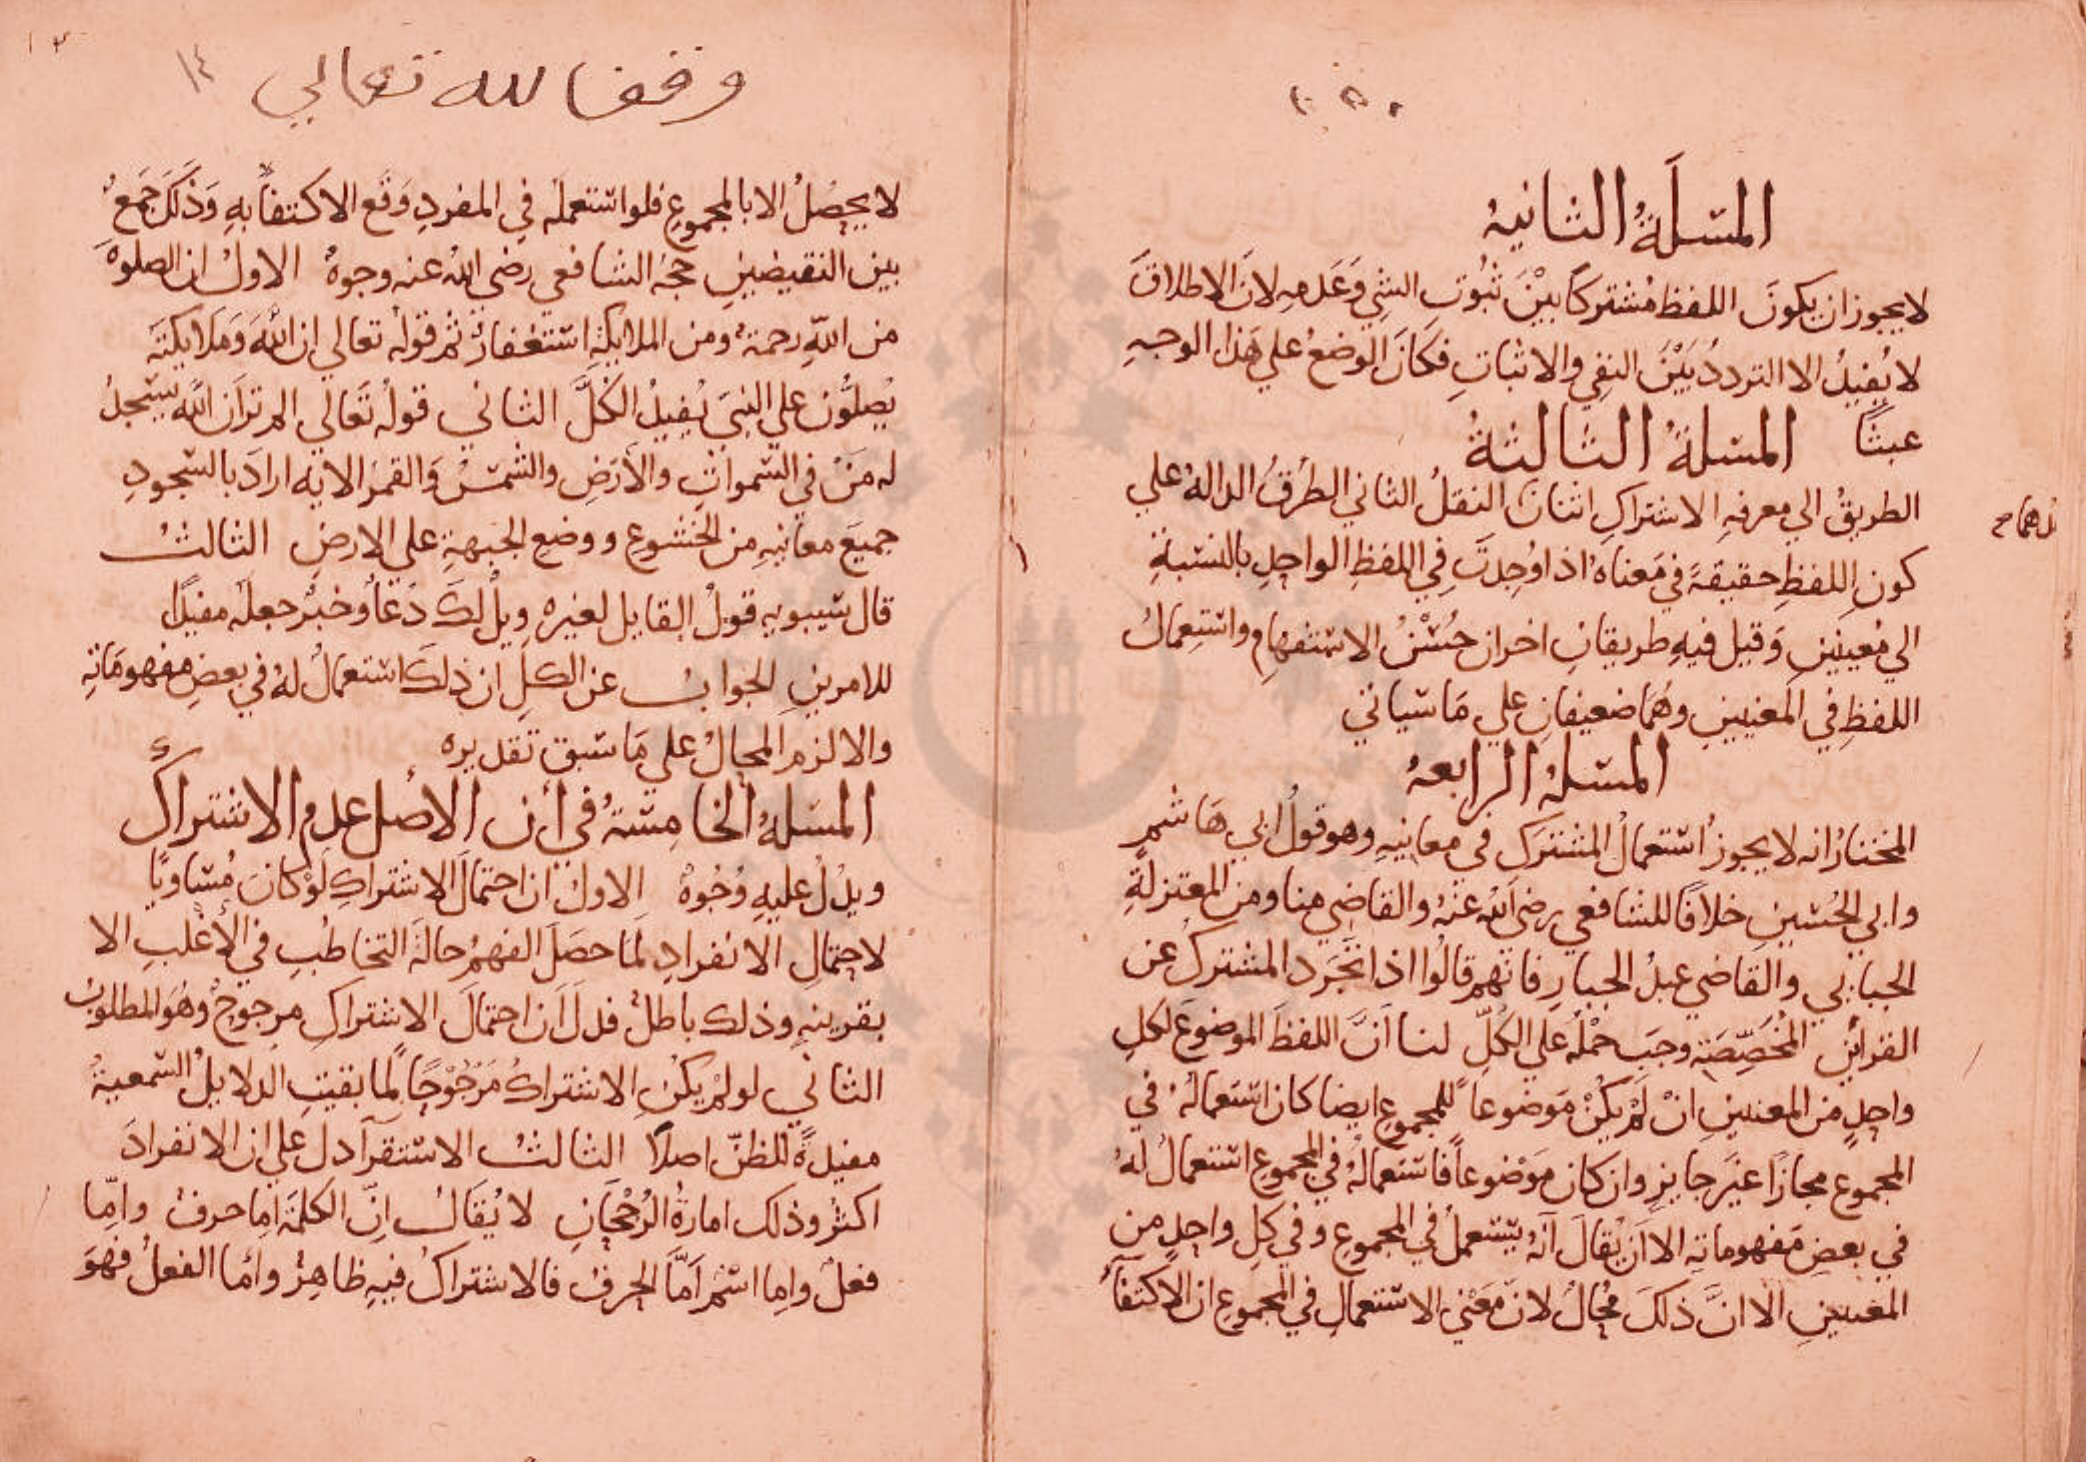 المسلَةُ الثانيهُ
لا يجوز ان يكونَ اللفظ مُشتركاً بيْنَ ثبُوتِ الشيِ وَعَدمهِ لانَ الاطلاقَ
لا يُفيدُ الا الترددُ بَيْنَ النفيِ والاثباتِ فكَانَ الوضعُ علي هَذا الوجهِ
عبثًا المسلةُ الثالثةُ
الطريقُ الي معرفهِ الاشتراكِ اثنان النقلُ الثاني الطُرقُ الدالةُ علي
كونِ اللفظِ حقيقةً في مَعناهُ اذا وُجدتَ فِي اللفظِ الواحدِ بالنسبةِ
الي مُعينينِ وَقيل فيهِ طريقانِ اخران حُسْنُ الاستفهام واستعمالُ
اللفظِ فِي المَعنيينِ وهُمَا ضعيفانِ علي مَا سياتي
المسلةُ الرابعهُ
المختارُ انه لا يجوزُ استعمالُ المشتركِ في معانيهِ وهو قولُ ابي هَاشمٍ
وابي الحُسينِ خلافًا للشافعي رضي اللهُ عنْهُ والقاضي منا ومن المعتزلةِ
الجبايي والقاضي عبدُ الجبارِ فانهم قالُوا اذا تجَرد المشتركُ عن
القرائنِ المُخَصِّصَةِ وجَب حْملُه علي الكُلِّ لنا اَنَّ اللفظَ الموضوعَ لكلِ
واحدٍ من المعنيينِ انْ لَمْ يكُنْ مَوضُوعاً للمجموعِ ايضا كان استعمالُهُ في
المجموع مجازًا غيَر جايزِ وان كان مَوْضوعاً فاستعمالُهُ في المجموعِ استعمالُ لهُ
في بعضِ مَفهوماتهِ الا اَنْ يُقالَ اَنهُ يستعملُ في المجموعِ وفي كلِ واحدٍ من
المعنيينِ الا انَّ ذلكَ مُحالُ لانَ مَعْني الاستعمالِ في المجموعِ ان الاكتفاءُ
وقفا لله تعالي ١٤
لا يحصُلُ الا بالمجموعِ فلو استعملَه فِي المفردِ وَقَع الاكتفاُ بهِ وَذَلكَ جَمَعُ
بين النقيضينِ حجهُ الشافعي رضي اللهُ عنه وجوهُ الاولُ ان الصلوهَ
من اللهِ رحمةُ ومن الملايكةِ استغفارُ ثم قولُه تعالي ان اللهَ وَمَلايكتَه
يُصلُّون علي النبيَ يُفيدُ الكُلَّ الثاني قولُه تَعالَي الم ترَان اللهَ يسْجدُ
له مَنْ في السمواتِ والأَرَضِ والشمسْ وَالقمرُ الايه ارادَ بالسجودِ
جميَع معانيهِ من الخشوعِ ووضعِ الجبهةِ علي الارضِ الثالثُ
قال سيبويهِ قولُ القايلِ لغيرهِ ويلُ لكَ دُعَأُ وخبرُ جعلَه مفيدًا
للامرينِ الجوابُ عن الكلِ ان ذلكَ استعمالُ لهُ في بعضِ مفهومَاتِهِ
والا لزم المحالُ علي مَا سَبق تقديره
المسلهُ الخامِسَةُ في أن الأصلَ عدم الاشتراكُ
ويدُلُ عليهِ وُجُوهُ الاولُ ان احتمالَ الاشتراكِ لَوْ كَانَ مُسَاويًا
لاحتمالِ الانفرادِ لَمَا حصَلَ الفهمُ حالةَ التخاطُبِ في الأَغْلبِ الا
بقرينهِ وذلك باطلُ فدلَ اَن احتمالَ الاشتراكِ مرجوحُ وهُوَ المطلوبُ
الثاني لو لم يكنِ الاشتراكُ مَرْجُوْحًا لَما بقيتِ الدلايلُ السمعيةُ
مفيدةً للظنِّ اصلاً الثالثُ الاستقرآ دل علي ان الانفرادَ
اكثرُ وذلك امارةُ الرُجْحَانِ لا يُقَالُ اِنَّ الكلمةَ امِا حرفُ وامِّا
فعلُ وامِا اسْمُ اَمَّا الحرفُ فالاشتراكُ فيهِ ظاهِرُ وأمَا الفعلُ فهُوَ